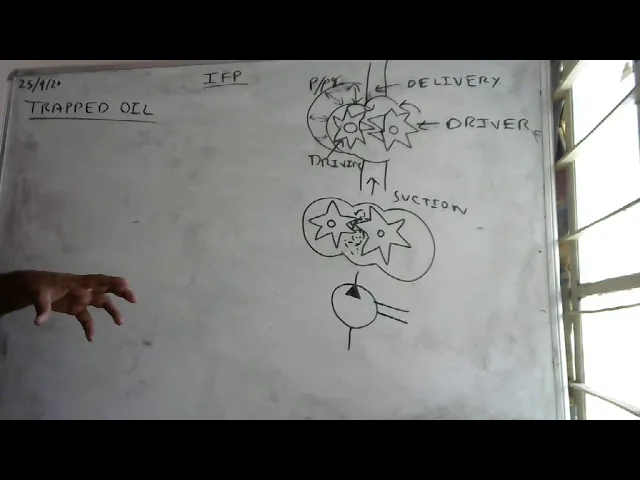 25/9/20
IFP
TRAPPED OIL
DELIVERY
DRIVER
DRIVEN
SUCTION